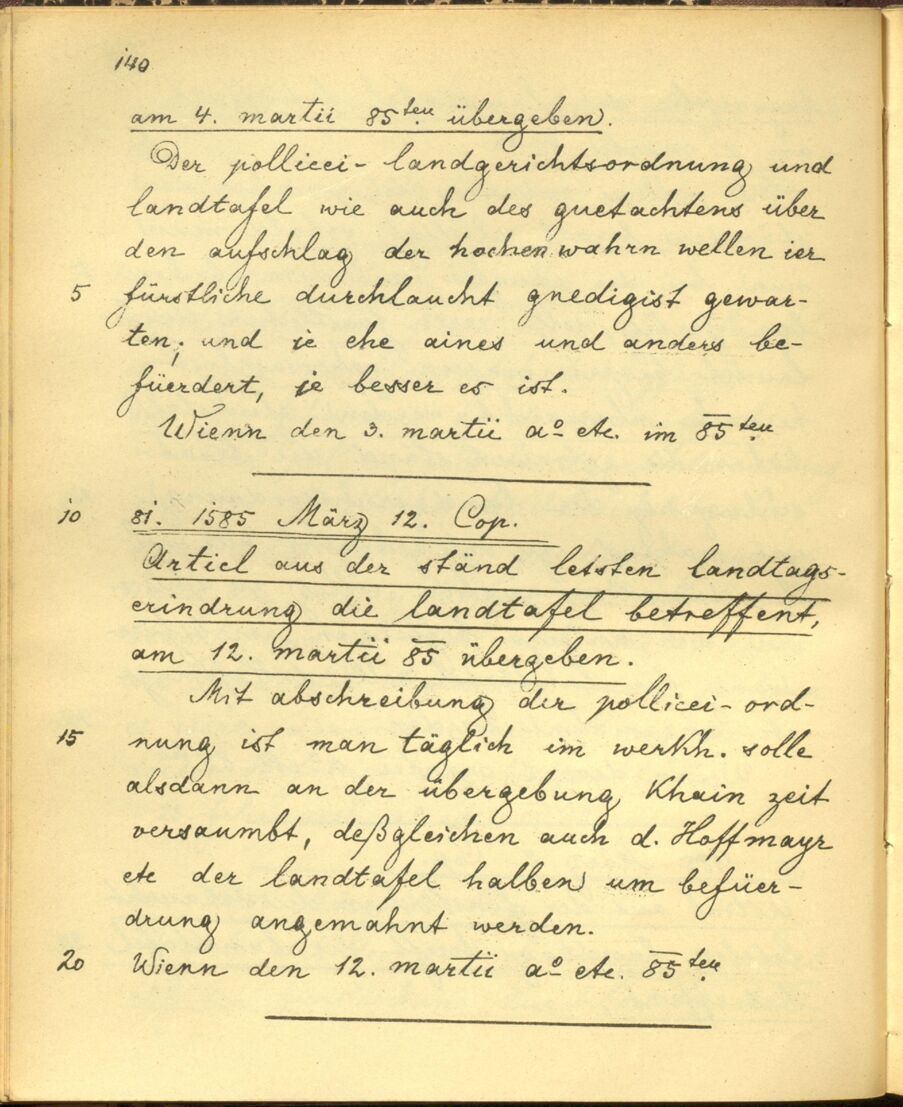 140
am 4. martii 85ten übergeben.
Der pollicei- landgerichtsordnung und
landtafel wie auch des guetachtens über
den aufschlag der hochen wahrn wellen ier
5 fürstliche durchlaucht gnedigist gewar-
ten; und je ehe aines und anders be-
füerdert, je besser es ist.
Wienn den 3. martii aº etc. im 85ten
10 81. 1585 März 12. Cop.
Articl aus der ständ letsten landtags-
erindrung die landtafel betreffent,
am 12. martii 85 übergeben.
Mit abschreibung der pollicei- ord-
15 nung ist man täglich im werkh. solle
alsdann an der übergebung khain zeit
versaumbt, deßgleichen auch d. Hoffmayr
etc der landtafel halben um befüer-
drung angemahnt werden.
20 Wienn den 12. martii aº etc. 85ten